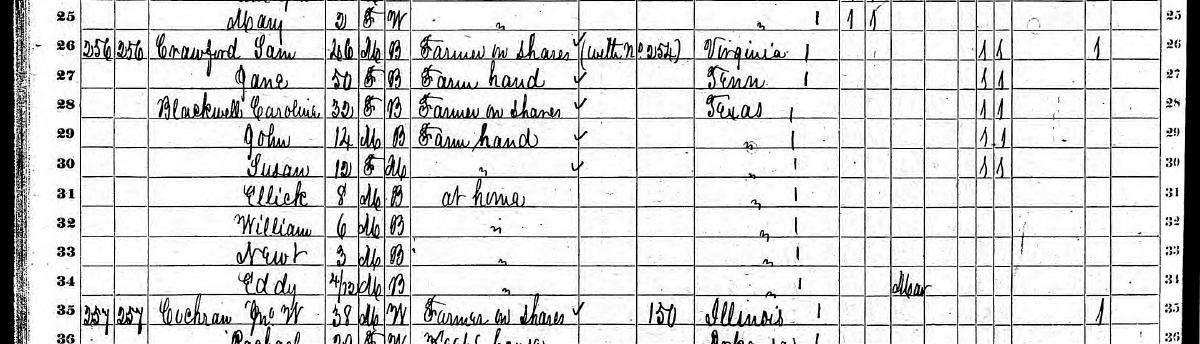 25 Mary 2 F W " " 1 1 25
26 256 256 Crawford Sam 46 M B Farmer on shares (with No. 254) Virginia 1 1 1 1 26
27 Jane 50 F B Farm hand Tenn 1 1 1 27
28 Blackwell Caroline 32 F B Farmer on shares Texas 1 1 1 28
29 John 14 M B Farm hand " 1 1 1 29
30 Susan 12 F M " " 1 1 1 30
31 Ellick 8 M B at home " 1 31
32 William 6 M B " " 1 32
33 Newt 3 M B " " 1 33
34 Eddy 4/12 M B " " 1 Mar 34
35 257 257 Cochran Jno W 38 M W Farmer on shares 150 Illinois 1 1 35
36 Rachael F W 36